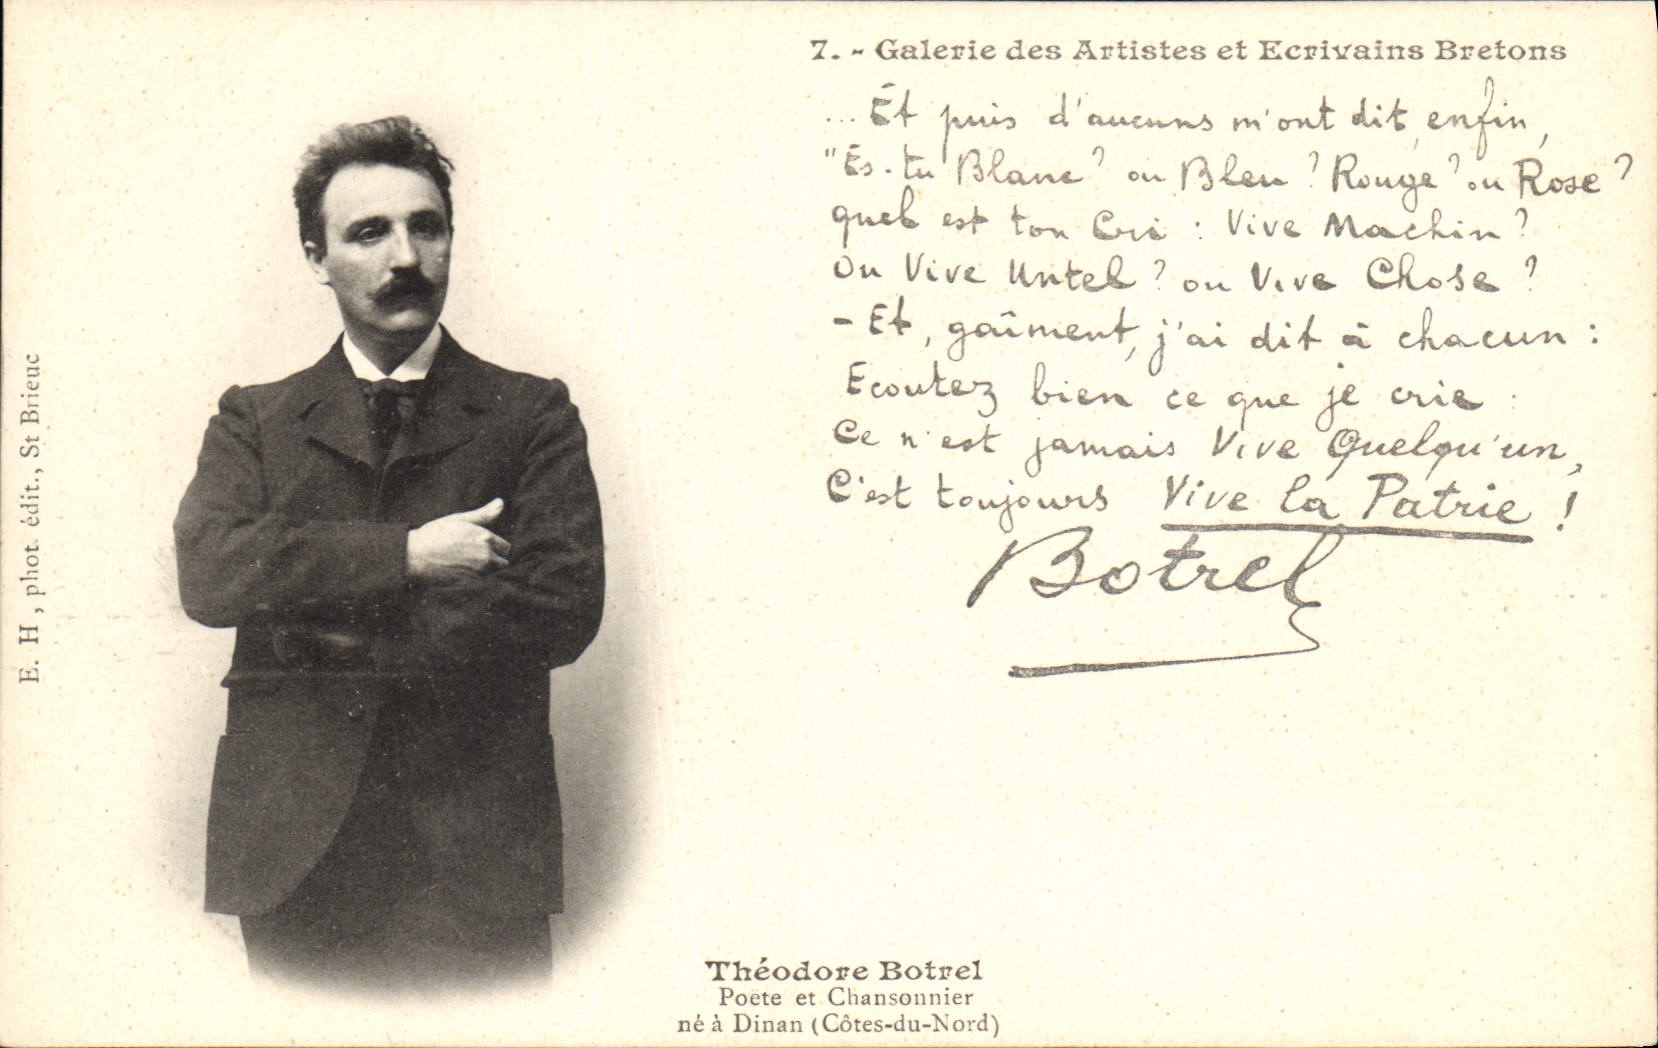 7. - Galerie des Artistes et Ecrivains Bretons
... Et puis d'aucuns m'ont dit, enfin,
"Es-tu Blanc ? ou Bleu ? Rouge ? ou Rose ?
quel est ton Cri : Vive Machin ?
Ou Vive Untel ? ou Vive Chose ?
- Et, gaîment, j'ai dit à chacun :
Ecoutez bien ce que je crie :
Ce n'est jamais Vive Quelqu'un,
C'est toujours Vive la Patrie !
Botrel
E. H, phot. édit., St Brieuc
Théodore Botrel
Poëte et Chansonnier
né à Dinan (Côtes-du-Nord)